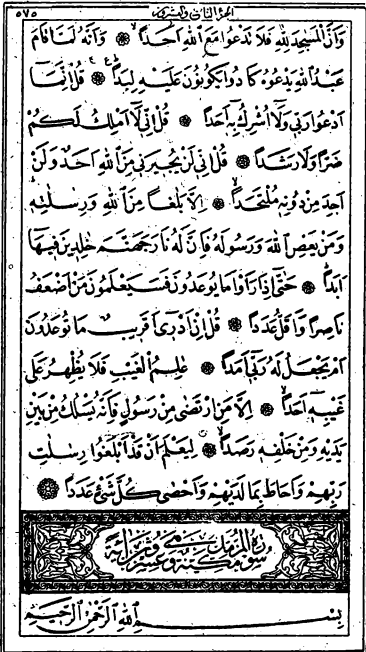 الجزء التاسع والعشرون ٥٧٥
وَاَنَّ الْمَسَاجِدَ لِلّٰهِ فَلَا تَدْعُوا مَعَ اللّٰهِ اَحَدًا ۞ وَاَنَّهُ لَمَّا قَامَ
عَبْدُ اللّٰهِ يَدْعُوهُ كَادُوا يَكُونُونَ عَلَيْهِ لِبَدًا ۞ قُلْ اِنَّمَٓا
اَدْعُوا رَبّ۪ي وَلَٓا اُشْرِكُ بِه۪ٓ اَحَدًا ۞ قُلْ اِنّ۪ي لَٓا اَمْلِكُ لَكُمْ
ضَرًّا وَلَا رَشَدًا ۞ قُلْ اِنّ۪ي لَنْ يُج۪يرَن۪ي مِنَ اللّٰهِ اَحَدٌ وَلَنْ
اَجِدَ مِنْ دُونِه۪ مُلْتَحَدًا ۞ اِلَّا بَلَاغًا مِنَ اللّٰهِ وَرِسَالَاتِه۪
وَمَنْ يَعْصِ اللّٰهَ وَرَسُولَهُ فَاِنَّ لَهُ نَارَ جَهَنَّمَ خَالِد۪ينَ ف۪يهَٓا
اَبَدًا ۞ حَتّٰٓى اِذَا رَاَوْا مَا يُوعَدُونَ فَسَيَعْلَمُونَ مَنْ اَضْعَفُ
نَاصِرًا وَاَقَلُّ عَدَدًا ۞ قُلْ اِنْ اَدْر۪ٓي اَقَر۪يبٌ مَا تُوعَدُونَ
اَمْ يَجْعَلُ لَهُ رَبّ۪ٓي اَمَدًا ۞ عَالِمُ الْغَيْبِ فَلَا يُظْهِرُ عَلٰى
غَيْبِه۪ٓ اَحَدًا ۞ اِلَّا مَنِ ارْتَضٰى مِنْ رَسُولٍ فَاِنَّهُ يَسْلُكُ مِنْ بَيْنِ
يَدَيْهِ وَمِنْ خَلْفِه۪ رَصَدًا ۞ لِيَعْلَمَ اَنْ قَدْ اَبْلَغُوا رِسَالَاتِ
رَبِّهِمْ وَاَحَاطَ بِمَا لَدَيْهِمْ وَاَحْصٰى كُلَّ شَيْءٍ عَدَدًا ۞
سورة المزمل مكية وهي عشرون آية
بِسْمِ اللّٰهِ الرَّحْمٰنِ الرَّح۪يمِ